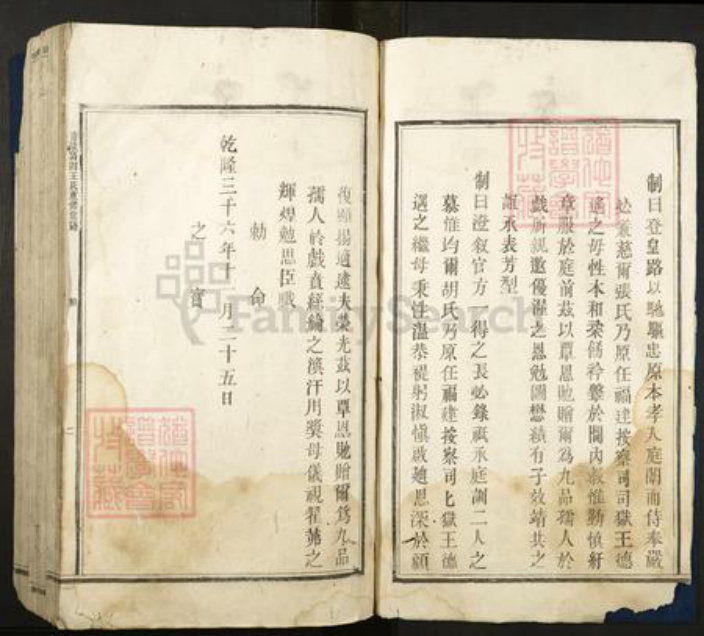 制曰登皇路以馳驅忠原本孝入庭闈而侍奉嚴
必兼慈爾張氏乃原任福建按察司司獄王德
遙之母性本和柔飭衿鞶於閫內教惟勤慎紆
章服於庭前茲以覃恩貤贈爾為九品孺人於
戲所親邀優渥之恩勉圖懋績有子效靖共之
誼永表芳型
制曰澄叙官方一得之長必錄祇承庭訓二人之
慕惟均爾胡氏乃原任福建按察司匕獄王德
遙之繼母秉性溫恭褆躬淑慎啟迪思深於顧
復顯揚適逮夫榮光茲以覃恩貤贈爾為九品
孺人於戲賁絲綸之渙汗用獎母儀視翟茀之
輝煌勉思臣職
勅命
乾隆三十六年十一月二十五日
之寶
二
FamilySearch